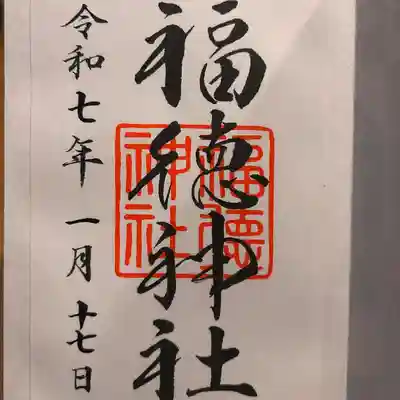 福徳神社
福徳神社
令和七年 一月 十七日